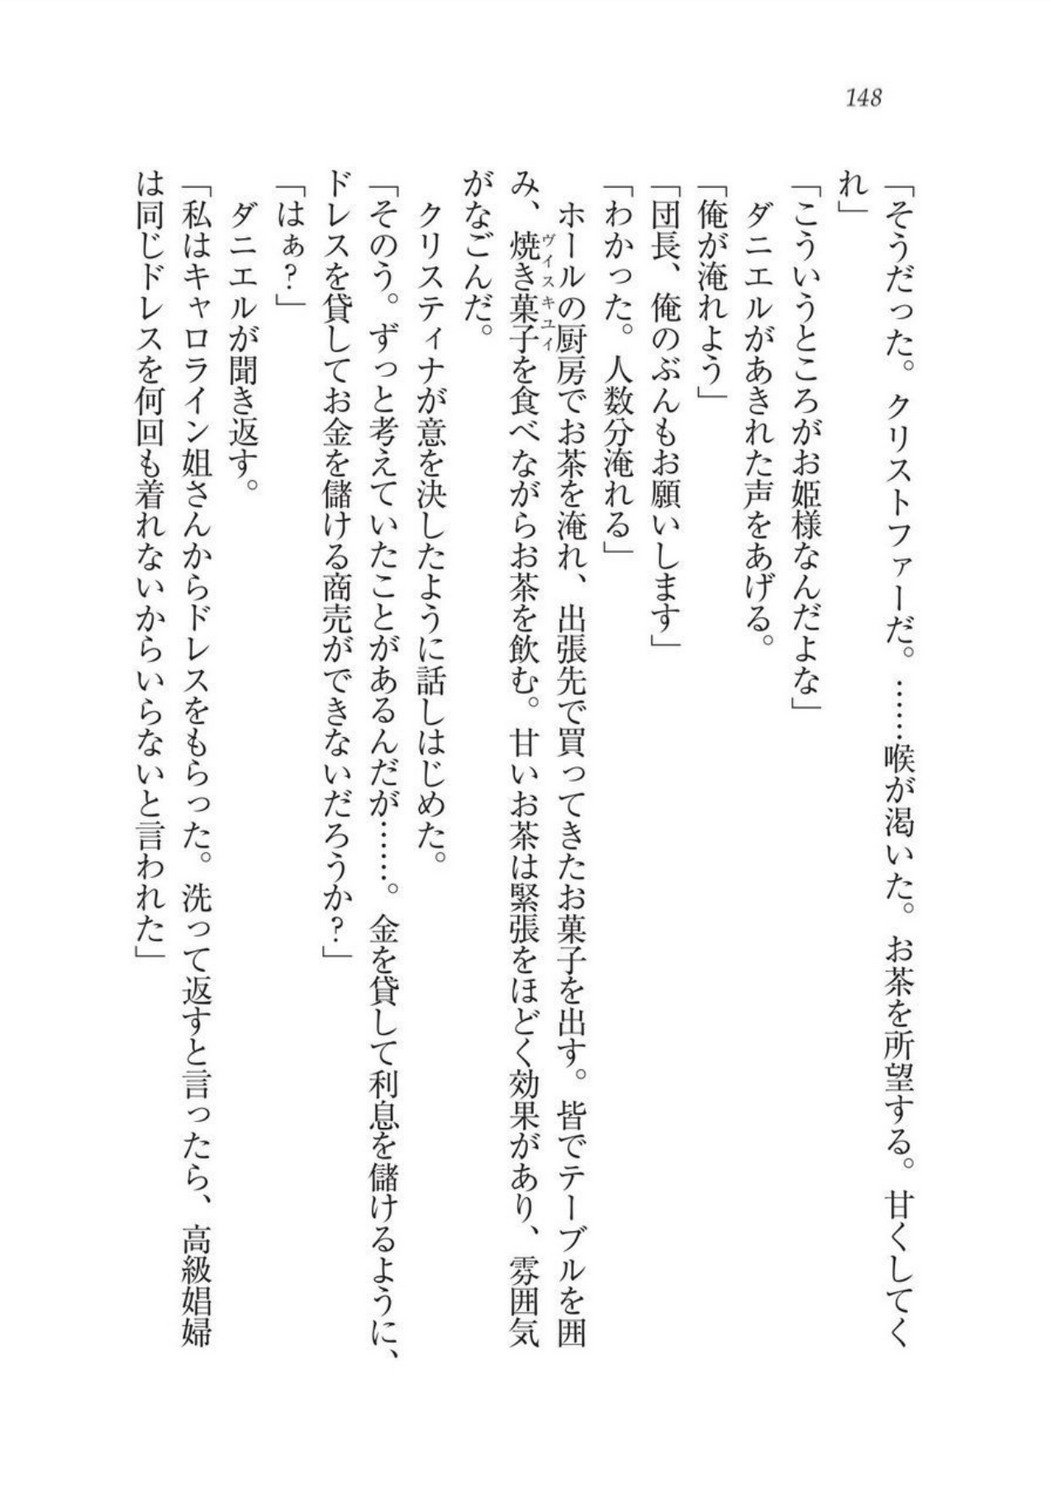 148
「そうだった。クリストファーだ。……喉が渇いた。お茶を所望する。甘くしてく
れ」
「こういうところがお姫様なんだよな」
ダニエルがあきれた声をあげる。
「俺が淹れよう」
「団長、俺のぶんもお願いします」
「わかった。人数分淹れる」
ホールの厨房でお茶を淹れ、出張先で買ってきたお菓子を出す。皆でテーブルを囲
み、焼き菓子を食べながらお茶を飲む。甘いお茶は緊張をほどく効果があり、雰囲気
ヴィスキュイ
がなごんだ。
クリスティナが意を決したように話しはじめた。
「そのう。ずっと考えていたことがあるんだが……。金を貸して利息を儲けるように、
ドレスを貸してお金を儲ける商売ができないだろうか?」
「はぁ?」
ダニエルが聞き返す。
「私はキャロライン姐さんからドレスをもらった。洗って返すと言ったら、高級娼婦
は同じドレスを何回も着れないからいらないと言われた」